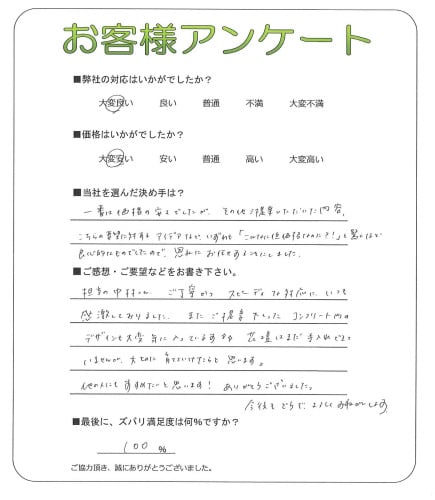 お客様アンケート
■弊社の対応はいかがでしたか？
大変良い 良い 普通 不満 大変不満
■価格はいかがでしたか？
大変安い 安い 普通 高い 大変高い
■当社を選んだ決め手は？
一番は価格の安さでしたが、その他ご提案いただいた内容、
こちらの要望に対するアイデアなど、いずれも「こんなに低価格なのに？！」と驚くほど
良心的なものでしたので、思わずお任せすることにしました。
■ご感想・ご要望などをお書き下さい。
担当の中村さん、ご丁寧かつスピーディな対応に、いつも
感激しておりました。またご提案下さったコンクリート内の
デザインも大変気に入っています 花壇はまだ手入れできて
いませんが、大切に育てていけたらと思います。
他の人にもすすめたいと思います！ ありがとうございました。
今後とも よろしくおねがいします
■最後に、ズバリ満足度は何%ですか？
100 %
ご協力頂き、誠にありがとうございました。